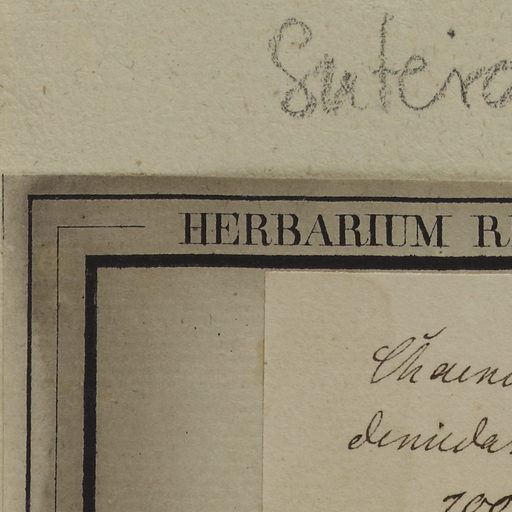 Sutera
HERBARIUM R
Chaen
denuda
700